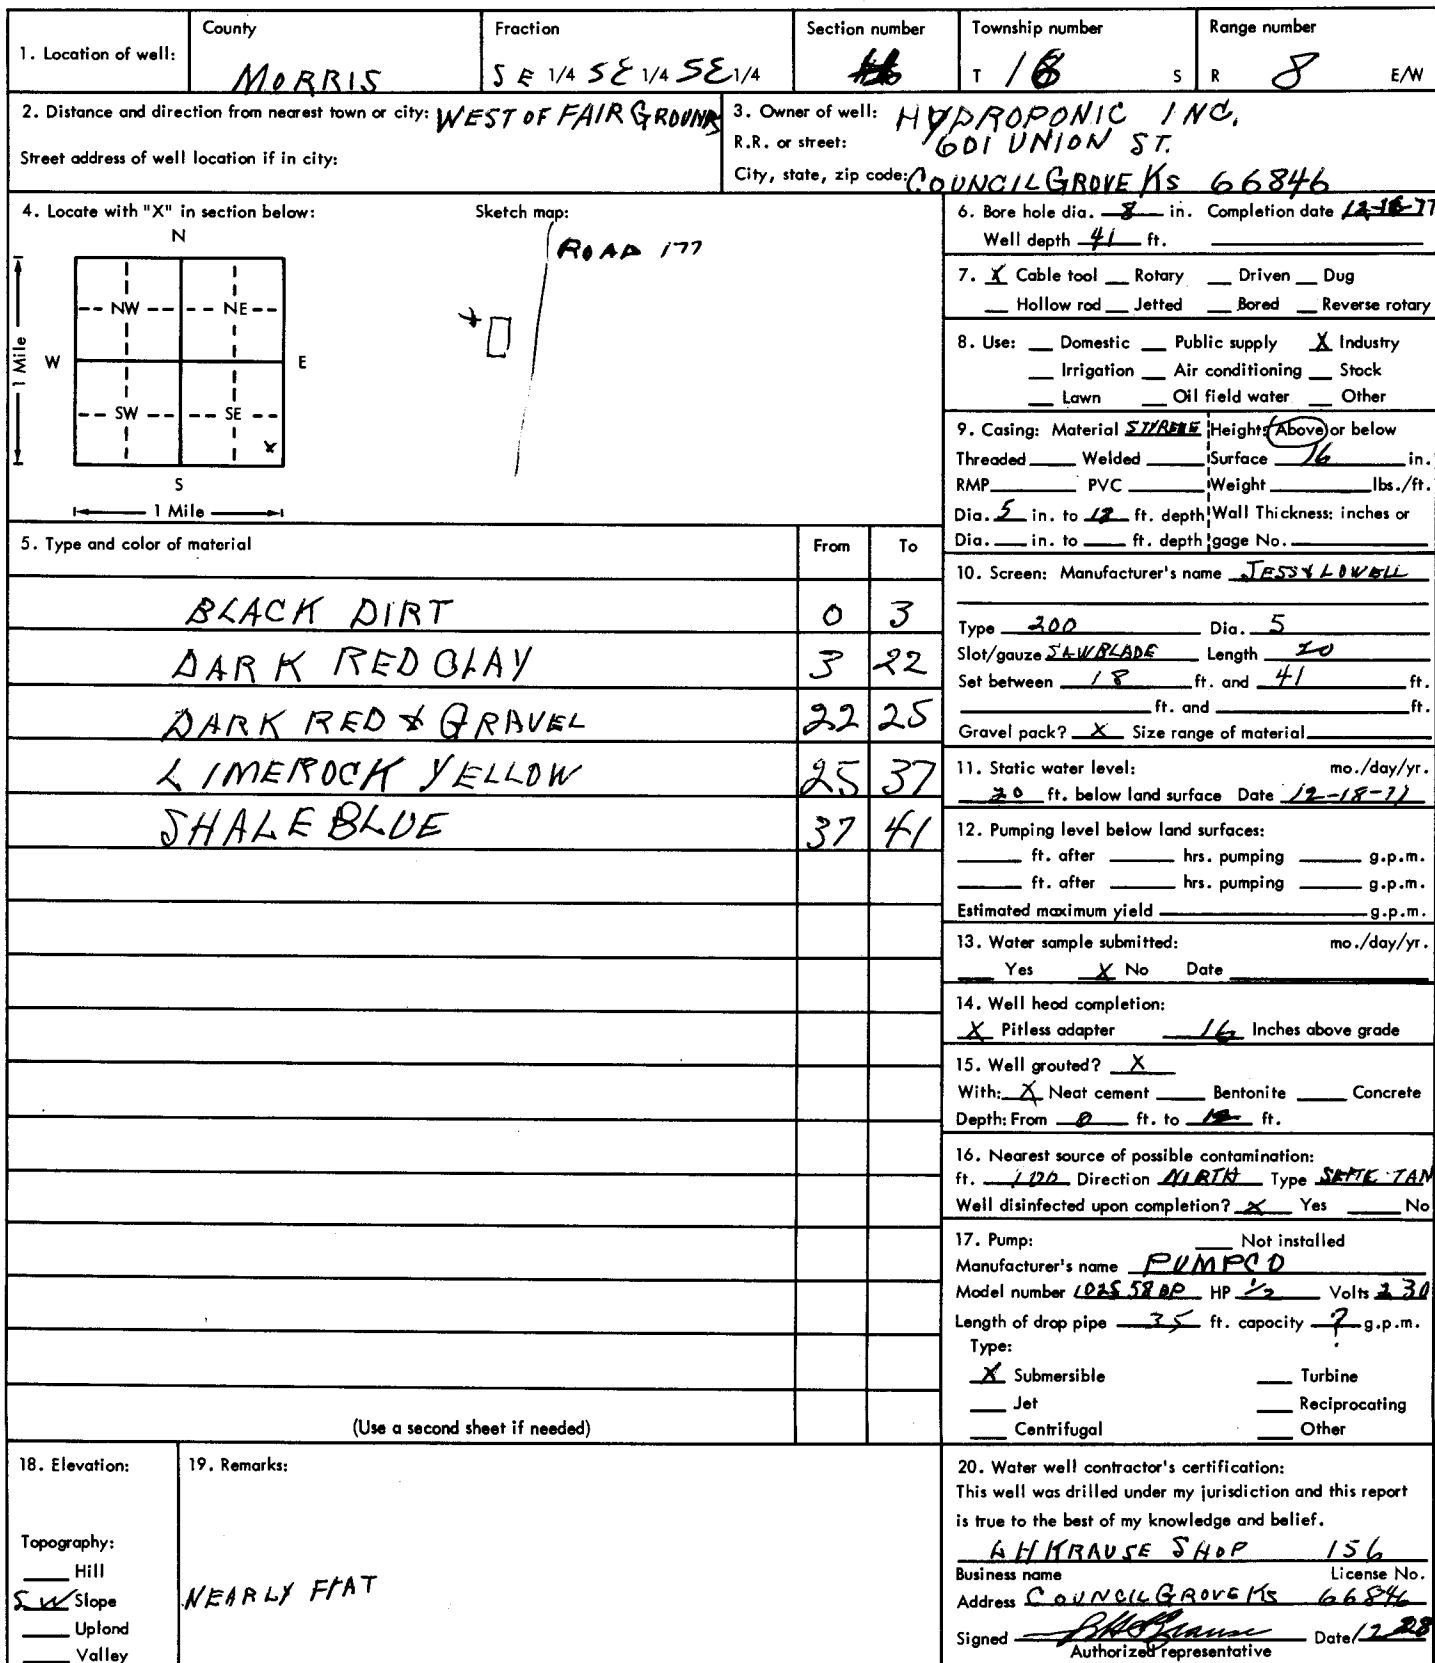 1. Location of well:
County
MORRIS
Fraction
SE 1/4 SE 1/4 SE 1/4
Section number
Township number
T 16 S
Range number
R 8 E/W
2. Distance and direction from nearest town or city: WEST OF FAIR GROUNDS
Street address of well location if in city:
3. Owner of well: HYDROPONIC INC.
R.R. or street: 601 UNION ST.
City, state, zip code: COUNCIL GROVE KS 66846
4. Locate with "X" in section below:
N
NW NE
W E
SW SE
X
S
1 Mile
1 Mile
Sketch map:
ROAD 177
5. Type and color of material From To
BLACK DIRT 0 3
DARK RED CLAY 3 22
DARK RED & GRAVEL 22 25
LIMEROCK YELLOW 25 37
SHALE BLUE 37 41
(Use a second sheet if needed)
6. Bore hole dia. 8 in. Completion date 12-16-77
Well depth 41 ft.
7. X Cable tool Rotary Driven Dug
Hollow rod Jetted Bored Reverse rotary
8. Use: Domestic Public supply X Industry
Irrigation Air conditioning Stock
Lawn Oil field water Other
9. Casing: Material STYRENE Height: Above or below
Threaded Welded Surface 16 in.
RMP PVC Weight lbs./ft.
Dia. 5 in. to 18 ft. depth Wall Thickness: inches or
Dia. in. to ft. depth gage No.
10. Screen: Manufacturer's name JESS & LOWELL
Type 200 Dia. 5
Slot/gauze SAWBLADE Length 20
Set between 18 ft. and 41 ft.
ft. and ft.
Gravel pack? X Size range of material
11. Static water level: mo./day/yr.
20 ft. below land surface Date 12-18-77
12. Pumping level below land surfaces:
ft. after hrs. pumping g.p.m.
ft. after hrs. pumping g.p.m.
Estimated maximum yield g.p.m.
13. Water sample submitted: mo./day/yr.
Yes X No Date
14. Well head completion:
X Pitless adapter 16 Inches above grade
15. Well grouted? X
With: X Neat cement Bentonite Concrete
Depth: From 0 ft. to ft.
16. Nearest source of possible contamination:
ft. 100 Direction NIRTH Type SEPTIC TAN
Well disinfected upon completion? X Yes No
17. Pump: Not installed
Manufacturer's name PUMPCO
Model number HP 1/2 Volts 230
Length of drop pipe 35 ft. capacity ? g.p.m.
Type:
X Submersible Turbine
Jet Reciprocating
Centrifugal Other
18. Elevation:
Topography:
Hill
SW Slope
Upland
Valley
19. Remarks:
NEARLY FLAT
20. Water well contractor's certification:
This well was drilled under my jurisdiction and this report
is true to the best of my knowledge and belief.
LH KRAUSE SHOP 156
Business name License No.
Address COUNCIL GROVE KS 66846
Signed Date 12 28
Authorized representative